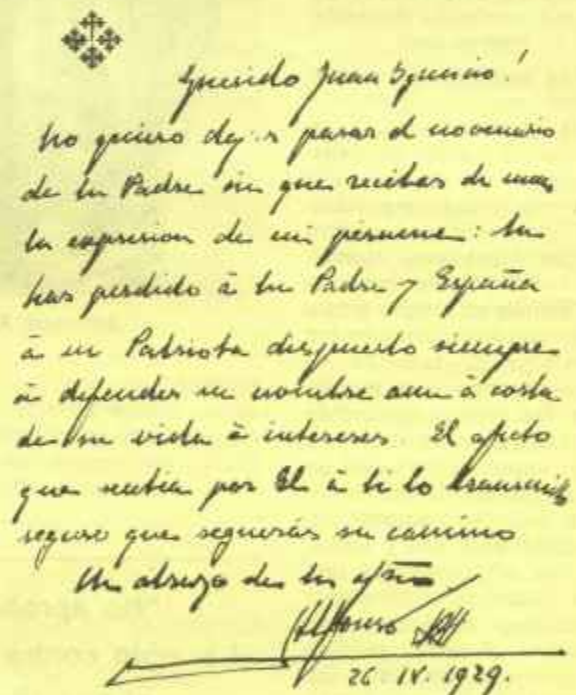 Querido Juan Ignacio!
No quiero dejar pasar el novenario
de tu Padre sin que recibas de nuevo
la expresion de mi pésame: tu
has perdido á tu Padre y España
á un Patriota dispuesto siempre
á defender su nombre aun á costa
de su vida é intereses. El afecto
que sentia por El á ti lo transmito
seguro que seguiras su camino
Un abrazo de tu afmo
Alfonso
26 IV. 1929.